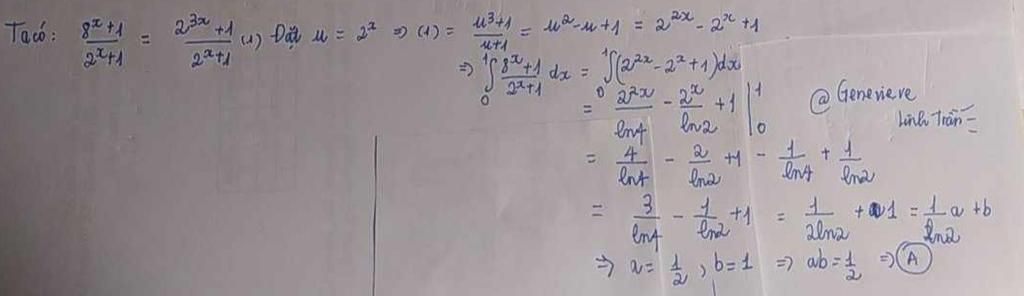 Ta có: (8^x+1)/(2^x+1) = (2^{3x}+1)/(2^x+1) (1) Đặt u = 2^x ⇒ (1) = (u^3+1)/(u+1) = u^2-u+1 = 2^{2x} - 2^x + 1
⇒ ∫_0^1 (8^x+1)/(2^x+1) dx = ∫_0^1 (2^{2x} - 2^x + 1) dx
= 2^{2x}/ln4 - 2^x/ln2 + 1 |_0^1
@ Genevieve
Linh Trần
= 4/ln4 - 2/ln2 + 1 - 1/ln4 + 1/ln2
= 3/ln4 - 1/ln2 + 1 = 1/(2ln2) + 1 = 1/ln2 a + b
⇒ a = 1/2, b = 1 ⇒ ab = 1/2 ⇒ A